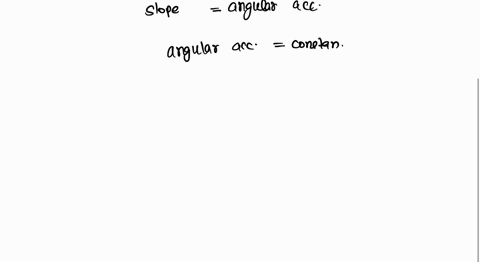 slope = angular acc.
angular acc. = constan.